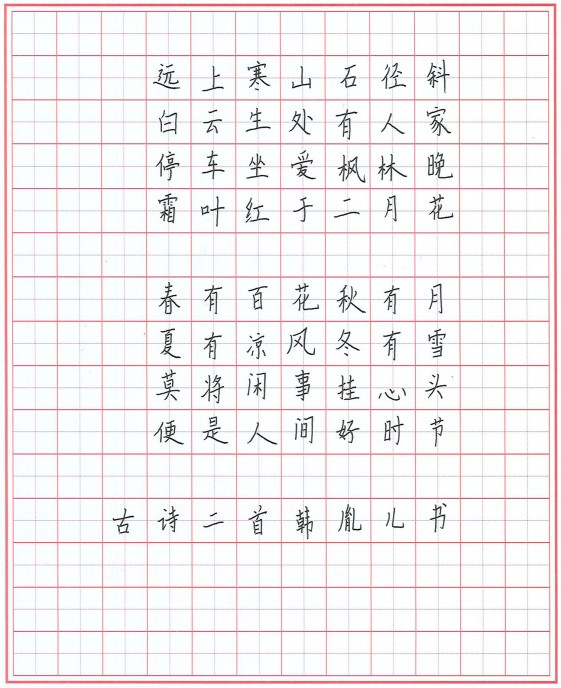 远上寒山石径斜
白云生处有人家
停车坐爱枫林晚
霜叶红于二月花
春有百花秋有月
夏有凉风冬有雪
莫将闲事挂心头
便是人间好时节
古诗二首韩胤儿书